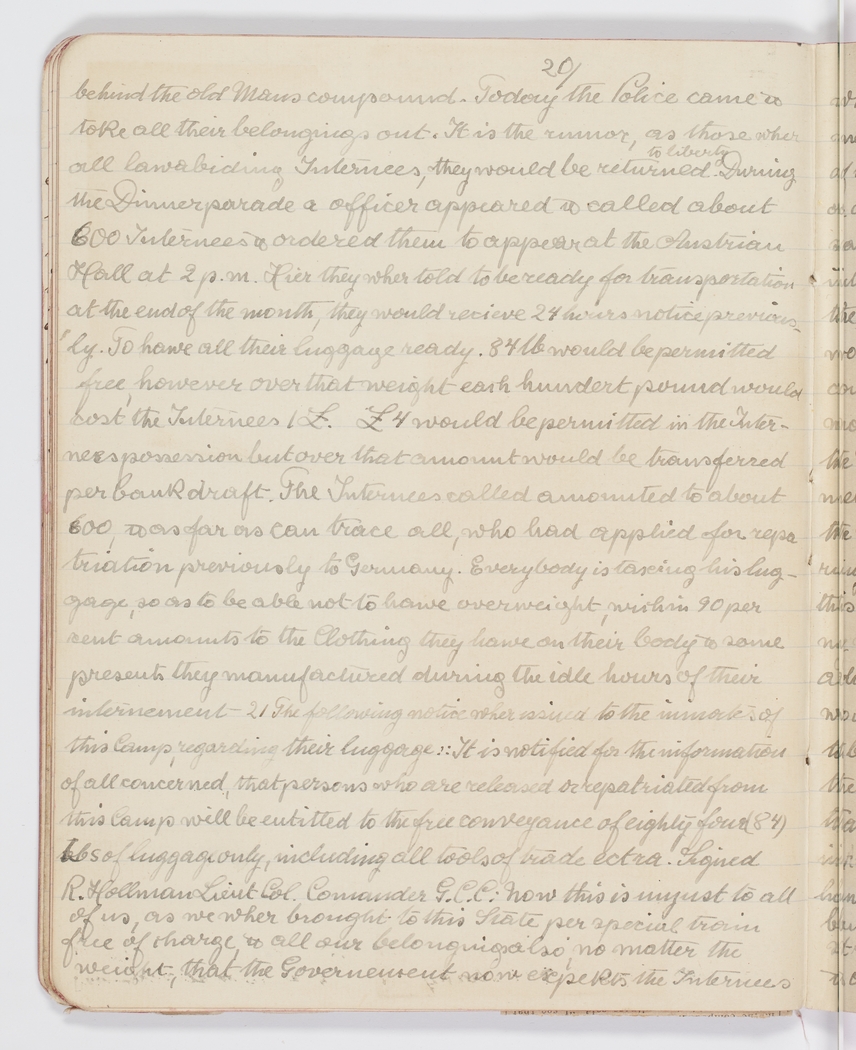 20/
behind the old Mans compound. Today the Police came &
take all their belongings out. It is the rumor, as those wher
all lawabiding Internees, they would be returned to liberty. During
the Dinnerparade a officer appeared & called about
600 Internees & ordered them to appear at the Austrian
Hall at 2 p.m. Hier they wher told to be ready for transportation
at the end of the month, they would recieve 24 hours notice previous-
ly. To hawe all their luggage ready. 84 lb would be permitted
free, however over that weight each hundert pound would
cost the Internees 1 £. £4 would be permitted in the Inter-
nees possession but over that amount would be transferred
per bank draft. The Internees called amounted to about
600, & as far as can trace all, who had applied for repa
triation previously to Germany. Everybody is taxing his lug-
gage, so as to be able not to hawe overweight, wich in 90 per
cent amounts to the Clothing they hawe on their body & some
presents they manufactured during the idle hours of their
internement – 21 The following notice wher issued to the inmates of
this Camp, regarding their luggage :: It is notified for the information
of all concerned, that persons who are released or repatriated from
this Camp will be entitled to the free conveyance of eighty four (84)
lbs of luggage only, including all tools of trade ectra. Signed
R. Hollman Lieut Col. Comander G.C.C: Now this is unjust to all
of us, as we wher brought to this State per special train
free of charge, & all our belongings also, no matter the
weight, that the Governement now expekts the Internees